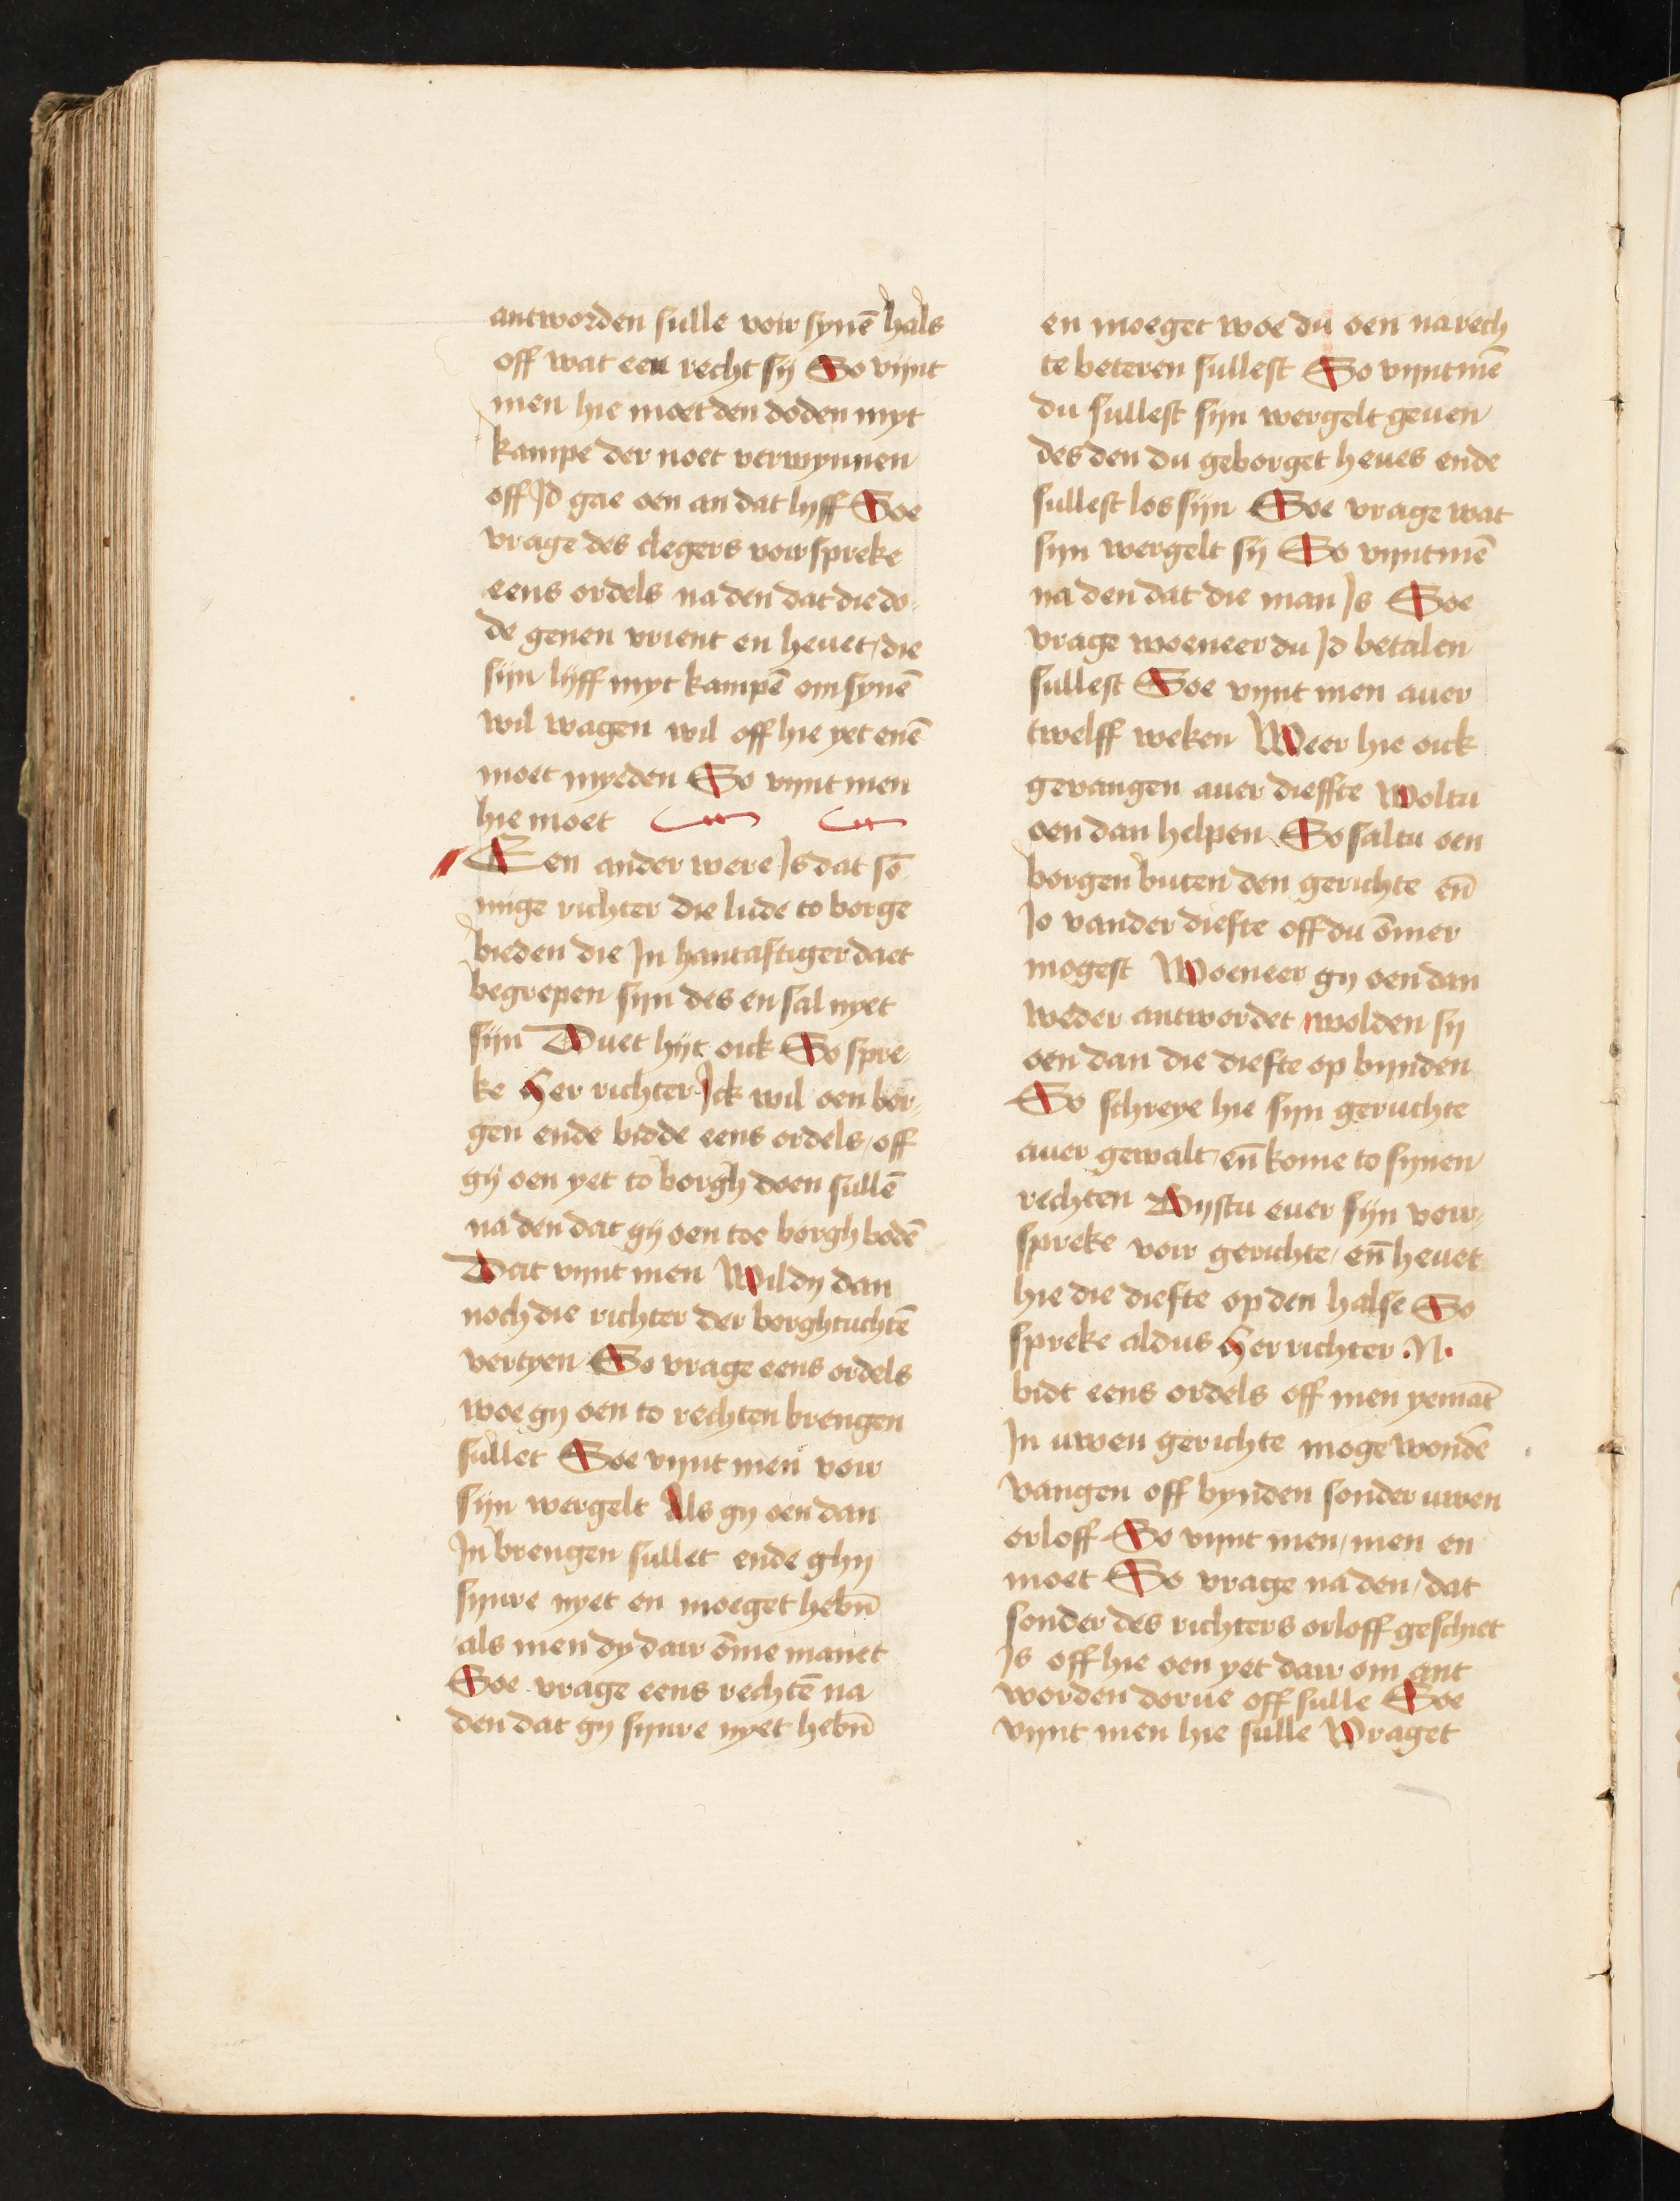 antworden sulle voir synē hals
off wat een recht sij So vijnt
men hie moet den doden myt
kampe der noet verwynnen
off Id gae oen an dat lyff Soe
vrage des clegers voirspreke
eens ordels na den dat die do-
de genen vrient en heuet / die
sijn lijff myt kampē om synē
wil wagen wil off hie yet enē
moet myeden So vijnt men
hie moet
Een ander were Is dat sō
nige richter die lude to borge
bieden die In hantaftiger daet
begrepen sijn des en sal nyet
sijn Duet hijt oick So spre-
ke Her richter Ick wil oen bor-
gen ende bidde eens ordels / off
gij oen yet to borgh doen sullē
na den dat gij oen toe borgh bodē
Dat vijnt men Wil dij dan
noch die richter der borghtuchtē
vertyen So vrage eens ordels
woe gij oen to rechten brengen
sullet Soe vijnt men voir
sijn wergelt Als gij oen dan
In brengen sullet ende ghij
synre nyet en moeget hebn̄
als men dy dair ōme manet
Soe vrage eens rechtē na
den dat gij synre nyet hebn̄
en moeget woe du oen na rech
te beteren sullest So vijnt mē
du sullest sijn wergelt geuen
des den du geborget heues ende
sullest los sijn Soe vrage wat
sijn wergelt sij So vijnt mē
na den dat die man Is Soe
vrage woeneer du Id betalen
sullest Soe vijnt men auer
twelff weken Weer hie oick
gevangen auer dieffte Woltu
oen dan helpen So saltu oen
borgen buten den gerichte en̄
Io vander diefte off du ōmer
mogest Woeneer gij oen dan
weder antwordet wolden sij
oen dan die diefte op bijnden
So schreye hie sijn geruchte
auer gewalt / en̄ kome to synen
rechten Bijstu euer sijn voir-
spreke voir gerichte / en̄ heuet
hie die diefte op den halse So
spreke aldus Her richter .N.
bidt eens ordels off men yemāt
In uwen gerichte moge wondē
vangen off bynden sonder uwen
orloff So vijnt men / men en
moet So vrage na den / dat
sonder des richters orloff geschiet
Is off hie oen yet dair om ant
worden dorue off sulle Soe
vijnt men hie sulle Vraget